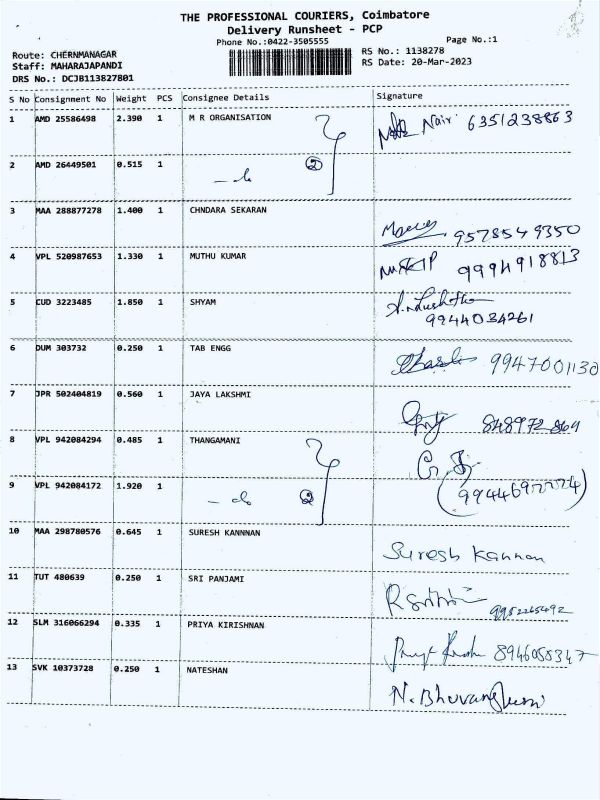 THE PROFESSIONAL COURIERS, Coimbatore
Delivery Runsheet - PCP
Phone No.:0422-3505555
Page No.:1
Route: CHERNMANAGAR
Staff: MAHARAJAPANDI
DRS No.: DCJB113827801
RS No.: 1138278
RS Date: 20-Mar-2023
S No Consignment No Weight PCS Consignee Details Signature
1 AMD 25586498 2.390 1 M R ORGANISATION Nair 6351238863
2 AMD 26449501 0.515 1 - do 2
3 MAA 288877278 1.400 1 CHNDARA SEKARAN 9578549350
4 VPL 520987653 1.330 1 MUTHU KUMAR 9994918813
5 CUD 3223485 1.850 1 SHYAM
9944034261
6 DUM 303732 0.250 1 TAB ENGG 9947001130
7 JPR 502404819 0.560 1 JAYA LAKSHMI
8 VPL 942084294 0.485 1 THANGAMANI
9 VPL 942084172 1.920 1 - do 2
10 MAA 298780576 0.645 1 SURESH KANNNAN Suresh Kannan
11 TUT 480639 0.250 1 SRI PANJAMI 9952265492
12 SLM 316066294 0.335 1 PRIYA KIRISHNAN 8946055347
13 SVK 10373728 0.250 1 NATESHAN